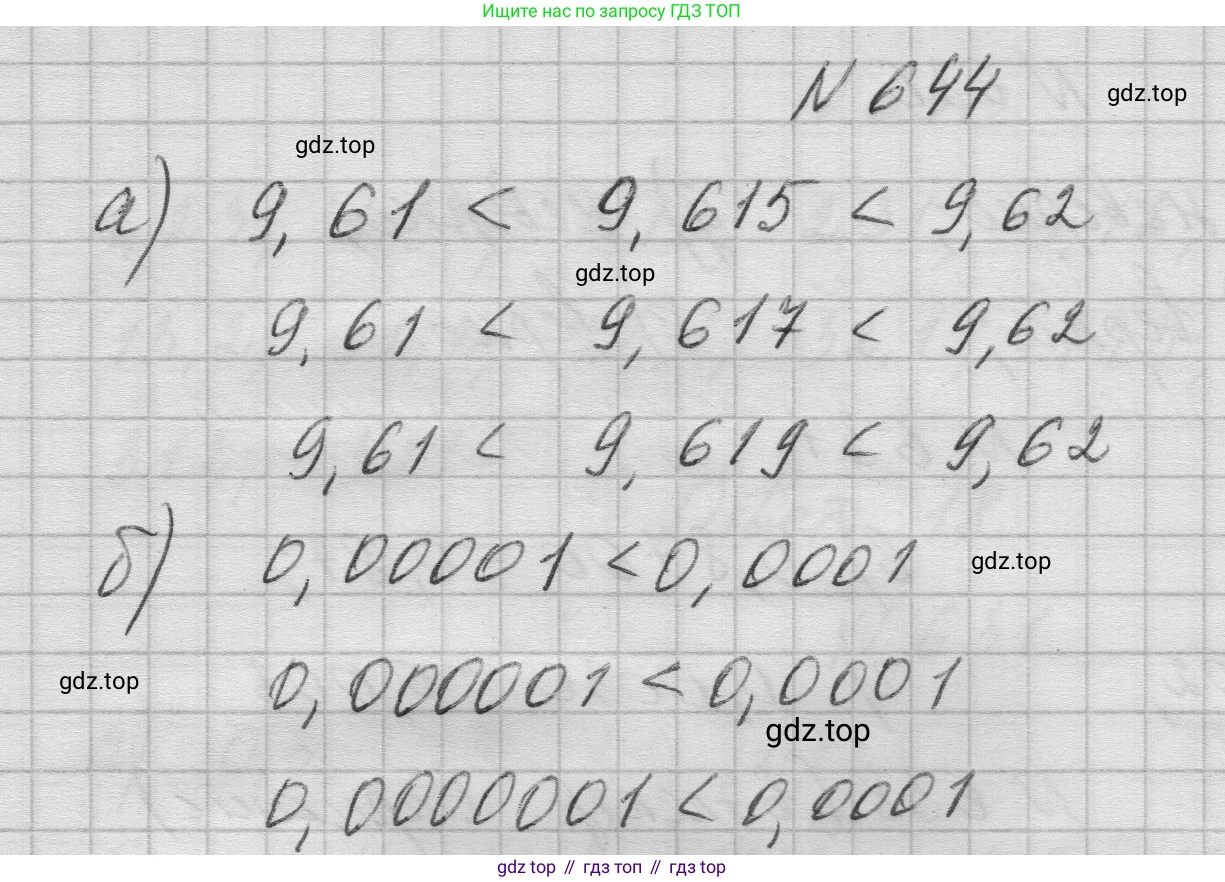 Ищите нас по запросу ГДЗ ТОП
N 644
gdz.top
gdz.top
а) 9,61 < 9,615 < 9,62
gdz.top
9,61 < 9,617 < 9,62
9,61 < 9,619 < 9,62
б) 0,00001 < 0,0001
gdz.top
gdz.top
0,000001 < 0,0001
gdz.top
0,0000001 < 0,0001
gdz top // гдз топ // гдз top